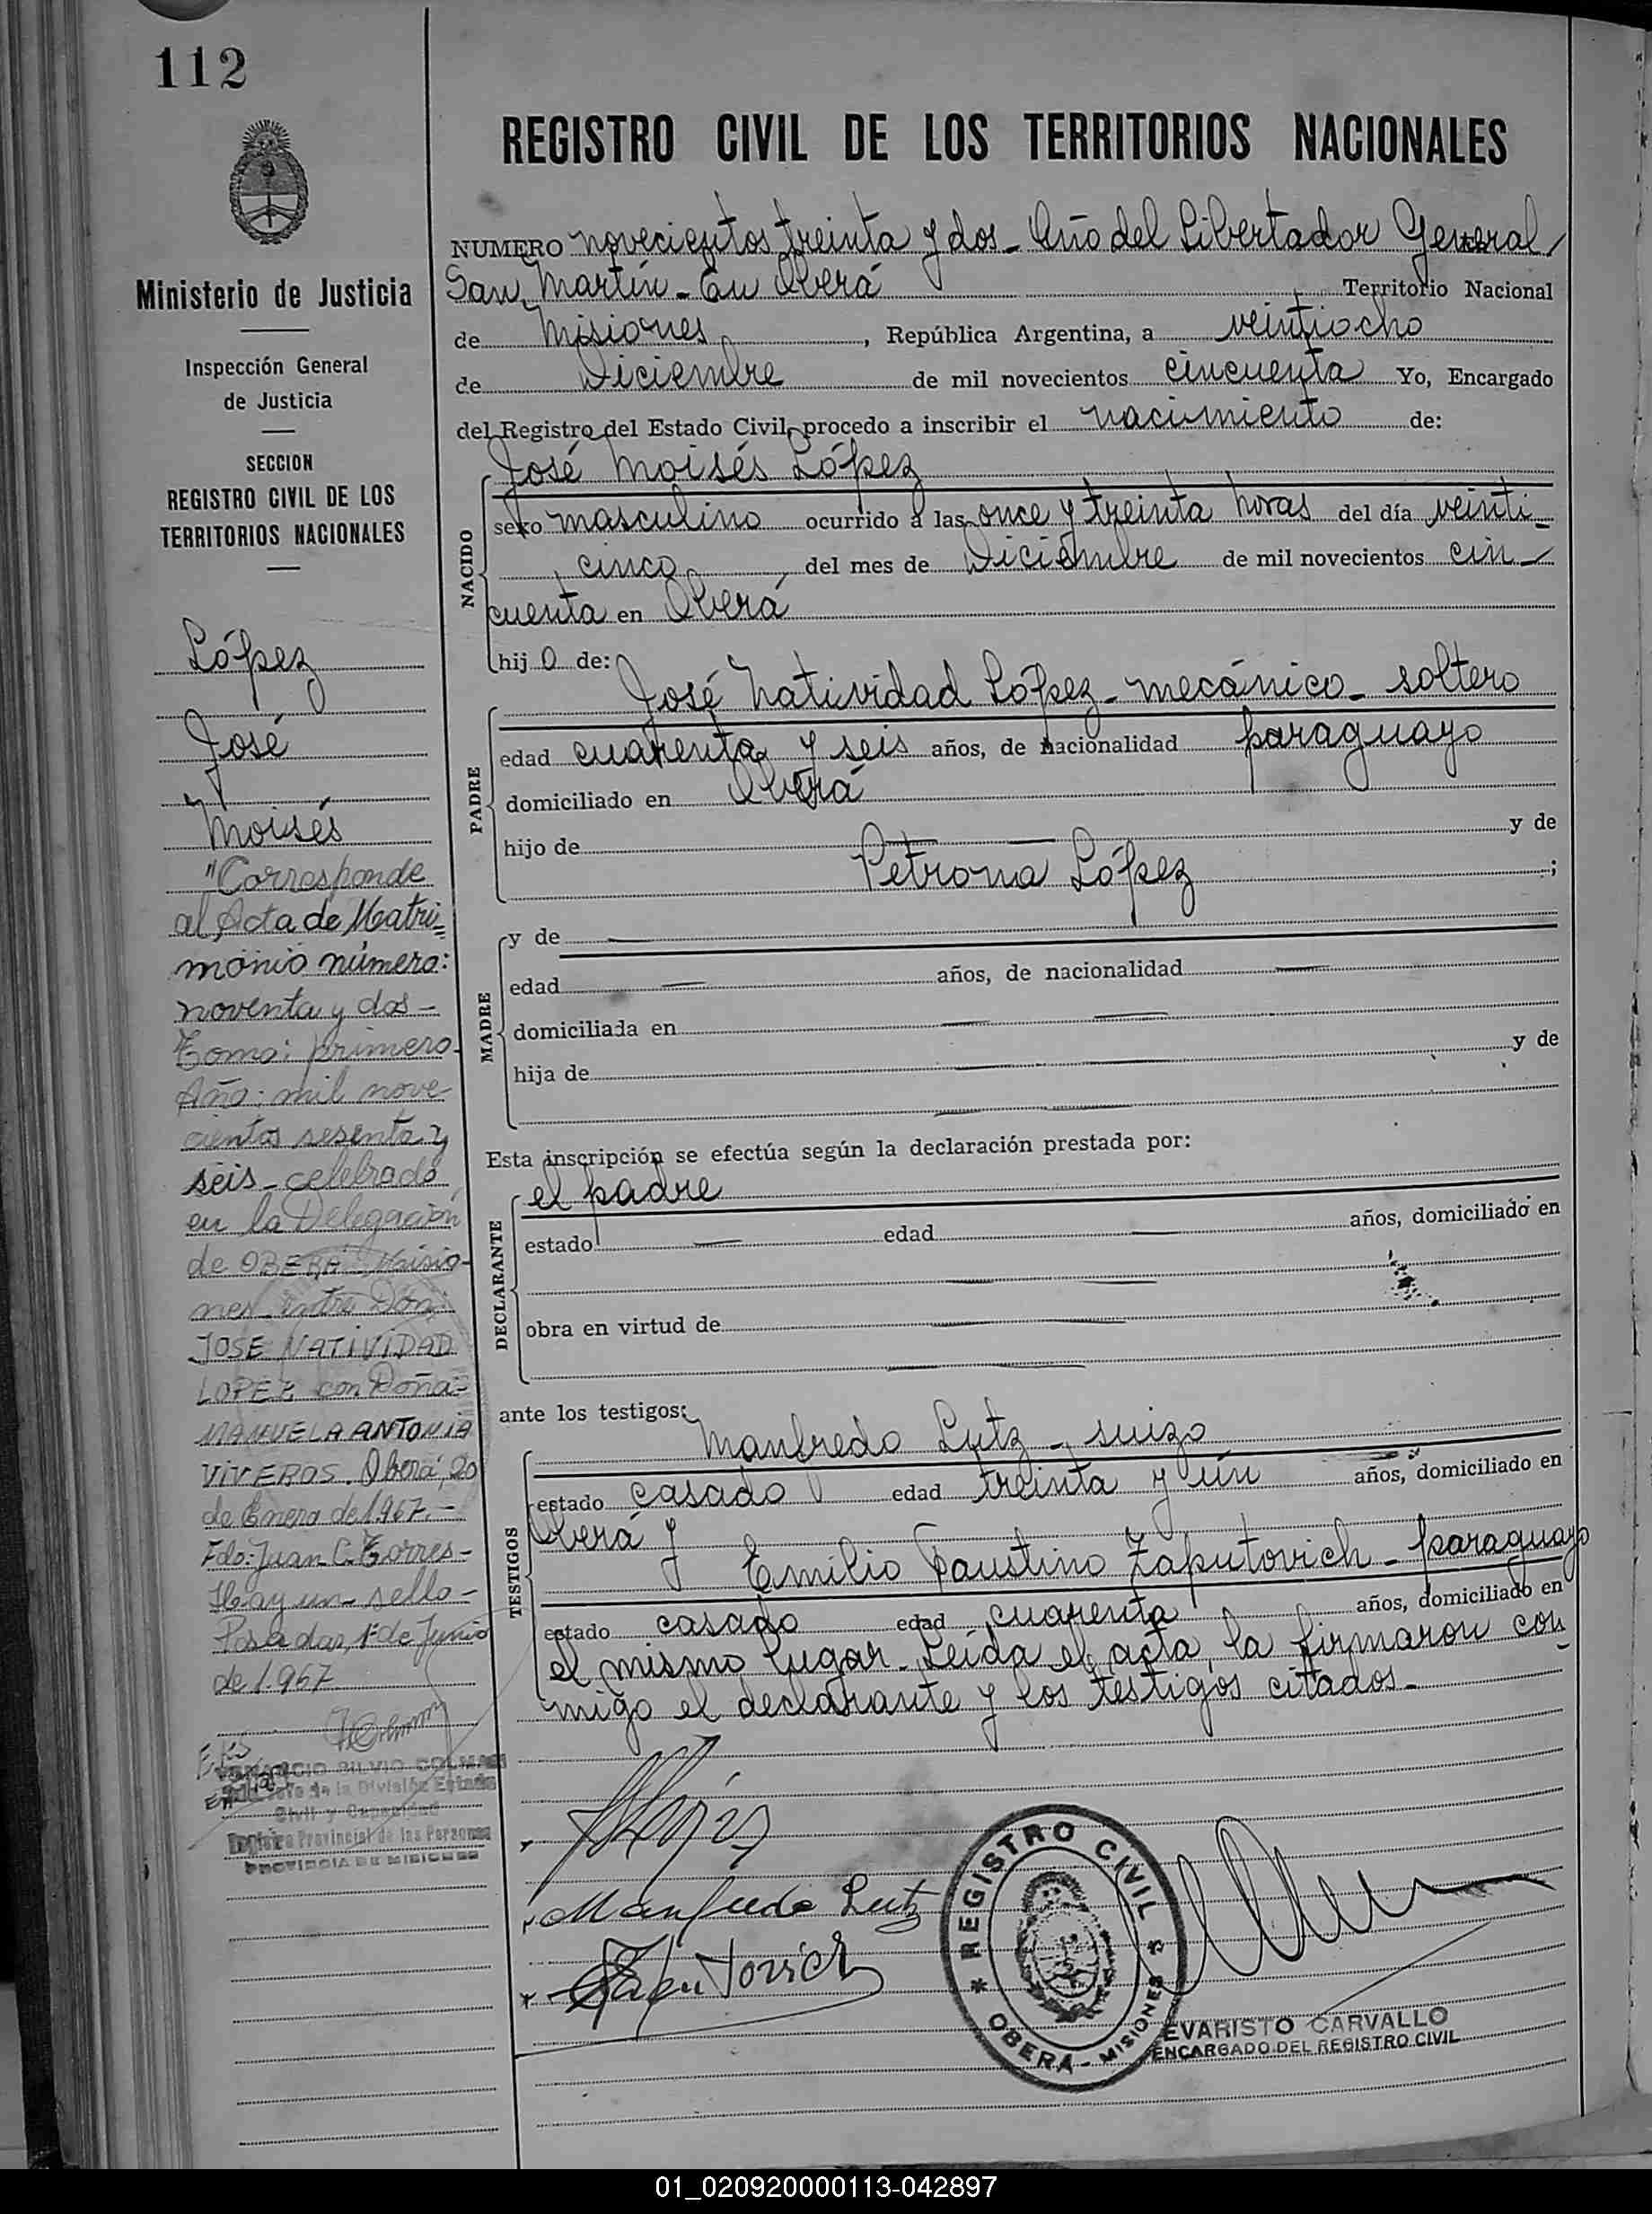 112
Ministerio de Justicia
Inspección General
de Justicia
SECCION
REGISTRO CIVIL DE LOS
TERRITORIOS NACIONALES
López
José
Moisés
"Corresponde
al Acta de Matri=
monio número:
noventa y dos -
Tomo: primero-
Año: mil nove-
cientos sesenta y
seis - celebrado
en la Delegación
de OBERÁ Misio-
nes entre Don:
JOSE NATIVIDAD
LOPEZ con Doña-
MANUELA ANTONIA
VIVEROS. Oberá, 20
de Enero de 1967.-
Fdo: Juan C. Torres-
Hay un sello -
Posadas, 1º de Junio
de 1.967
SILVIO COLMAN
de la División Estado
Civil y Capacidad
Registro Provincial de las Personas
PROVINCIA DE MISIONES
REGISTRO CIVIL DE LOS TERRITORIOS NACIONALES
NUMERO novecientos treinta y dos - Año del Libertador General
San Martín - En Oberá Territorio Nacional
de Misiones, República Argentina, a veintiocho
de Diciembre de mil novecientos cincuenta Yo, Encargado
del Registro del Estado Civil, procedo a inscribir el nacimiento de:
NACIDO
José Moisés López
sexo masculino ocurrido a las once y treinta horas del día veinti-
cinco del mes de Diciembre de mil novecientos cin-
cuenta en Oberá
hij o de:
PADRE
José Natividad López - mecánico - soltero
edad cuarenta y seis años, de nacionalidad paraguayo
domiciliado en Oberá
hijo de y de
Petrona López ;
MADRE
y de
edad años, de nacionalidad
domiciliada en
hija de y de
Esta inscripción se efectúa según la declaración prestada por:
DECLARANTE
el padre
estado edad años, domiciliado en
obra en virtud de
ante los testigos:
TESTIGOS
Manfredo Lutz - suizo
estado casado edad treinta y ún años, domiciliado en
Oberá y
Emilio Faustino Zaputovich - paraguayo
estado casado edad cuarenta años, domiciliado en
el mismo lugar. Leída el acta, la firmaron con-
migo el declarante y los testigos citados -
López
Manfredo Lutz
Zaputovich
REGISTRO CIVIL
OBERÁ - MISIONES
EVARISTO CARVALLO
ENCARGADO DEL REGISTRO CIVIL
01_020920000113-042897